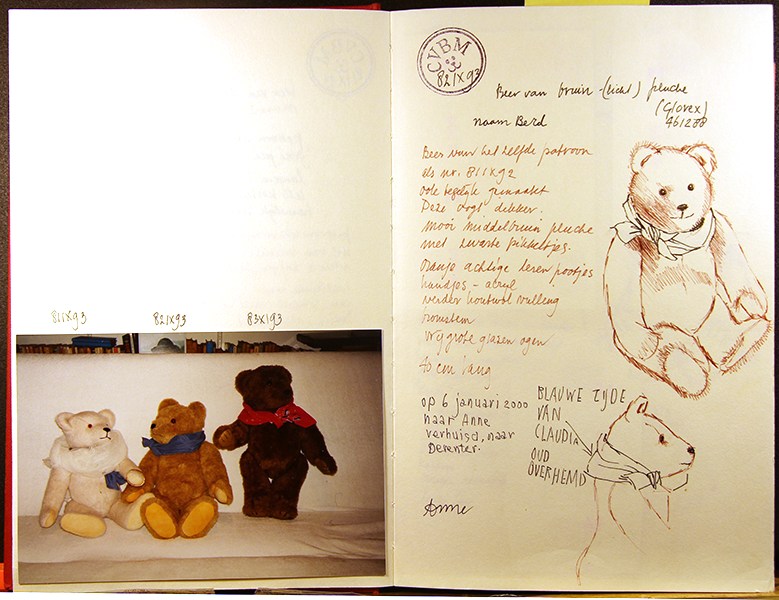 811x93 821x93 83x193
CVBM
821x93
Beer van bruin-(licht) pluche
(Glorex)
461288
naam Berd
Beer van het zelfde patroon
als nr. 811x92
ook tegelijk gemaakt
Deze oogt dikker.
Mooi middelbruin pluche
met zwarte pikkeltjes.
Oranje achtige leren pootjes
handjes - acryl
verder houtwol vulling
bromstem
vrij grote glazen ogen
40 cm lang
op 6 januari 2000
naar Anne
verhuisd, naar
Deventer.
BLAUWE ZIJDE
VAN
CLAUDIA
OUD
OVERHEMD
Anne